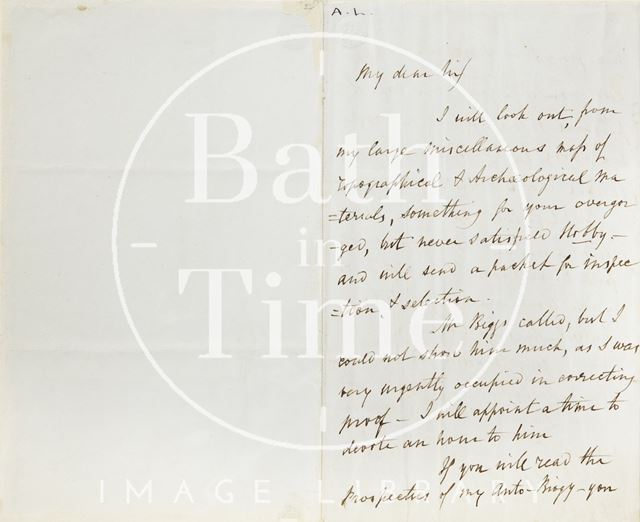 A. L.
My dear Sir/
I will look out, from
my large miscellaneous mass of
Topographical & Archæological ma
=terials, something for your overgor
-ged, but never satisfied Hobby -
and will send a packet for inspec
=tion & selection.
Mr Biggs called, but I
could not show him much, as I was
very urgently occupied in correcting
proof - I will appoint a time to
devote an hour to him
If you will read the
Prospectus of my Auto-Biogy - you
Bath
in
Time
IMAGE LIBRARY